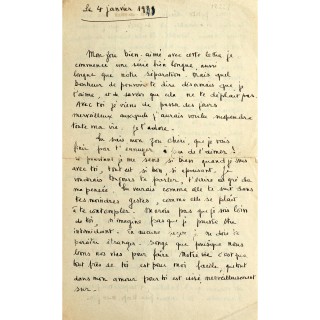 le 4 janvier
Mon fou bien-aimé avec cette lettre je
commence une série bien longue, aussi
longue que notre séparation. Mais quel
bonheur de pouvoir te dire désormais que je
t'aime, et de savoir que cela ne te déplaît pas.
Avec toi je viens de passer des jours
merveilleux auxquels j'aurais voulu suspendre
toute ma vie. je t'adore.
Tu sais mon fou chéri, que je vais
finir par t'ennuyer à de t'aimer!
et pourtant je me sens si bien quand je suis
avec toi, tout est si bon si apaisant, je
voudrais toujours te parler, t'écrire au gré de
ma pensée. Tu verrais comme elle te suit dans
tes moindres gestes, comme elle se plaît
à te contempler. Ne crois pas que je sois loin
de toi, n'imagine pas que je puisse être
intimidant. En aucune façon je ne dois te
paraître étranger. Songe que presque nous
unis nos vies pour faire Notre vie c'est que
tout près de toi est pour moi facile, que tout
dans mon amour pour toi est merveilleusement
sûr.